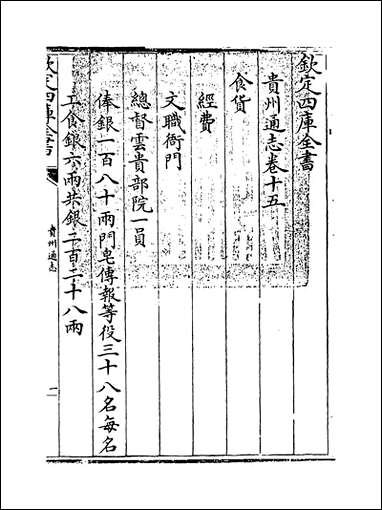 欽定四庫全書
貴州通志卷十五
食貨
經費
文職衙門
總督雲貴部院一員
俸銀一百八十兩門皂傳報等役三十八名每名
工食銀六兩共銀二百二十八兩
欽定四庫全書
貴州通志